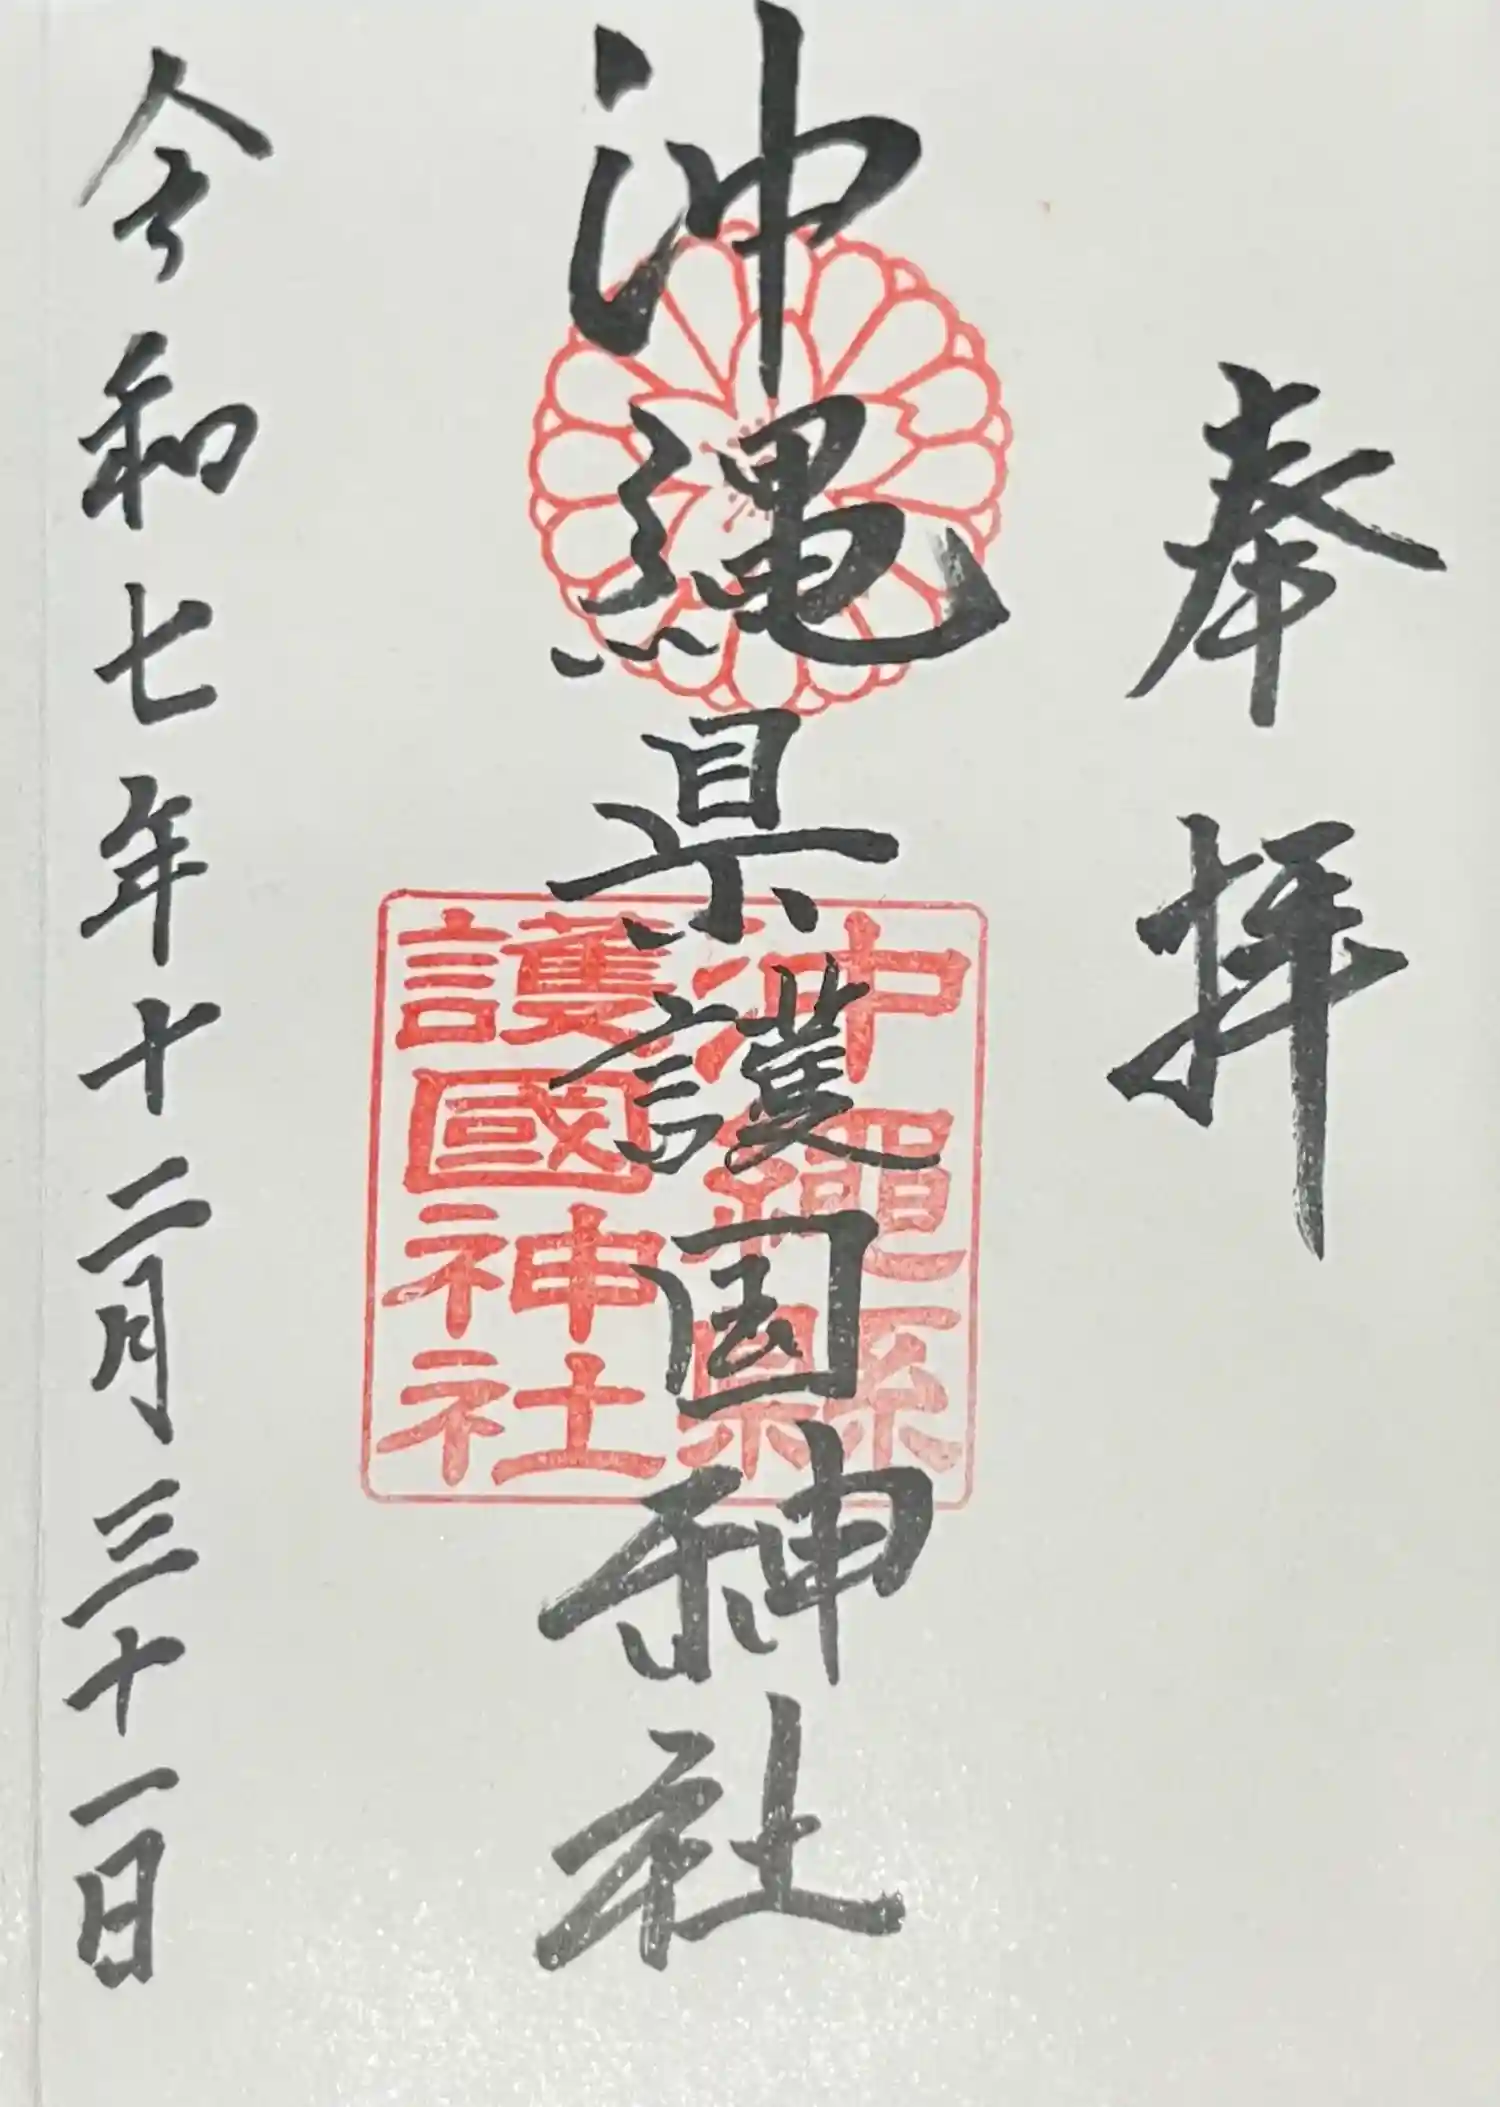 奉拝
沖縄県護国神社
沖繩縣
護國神社
令和七年十二月三十一日